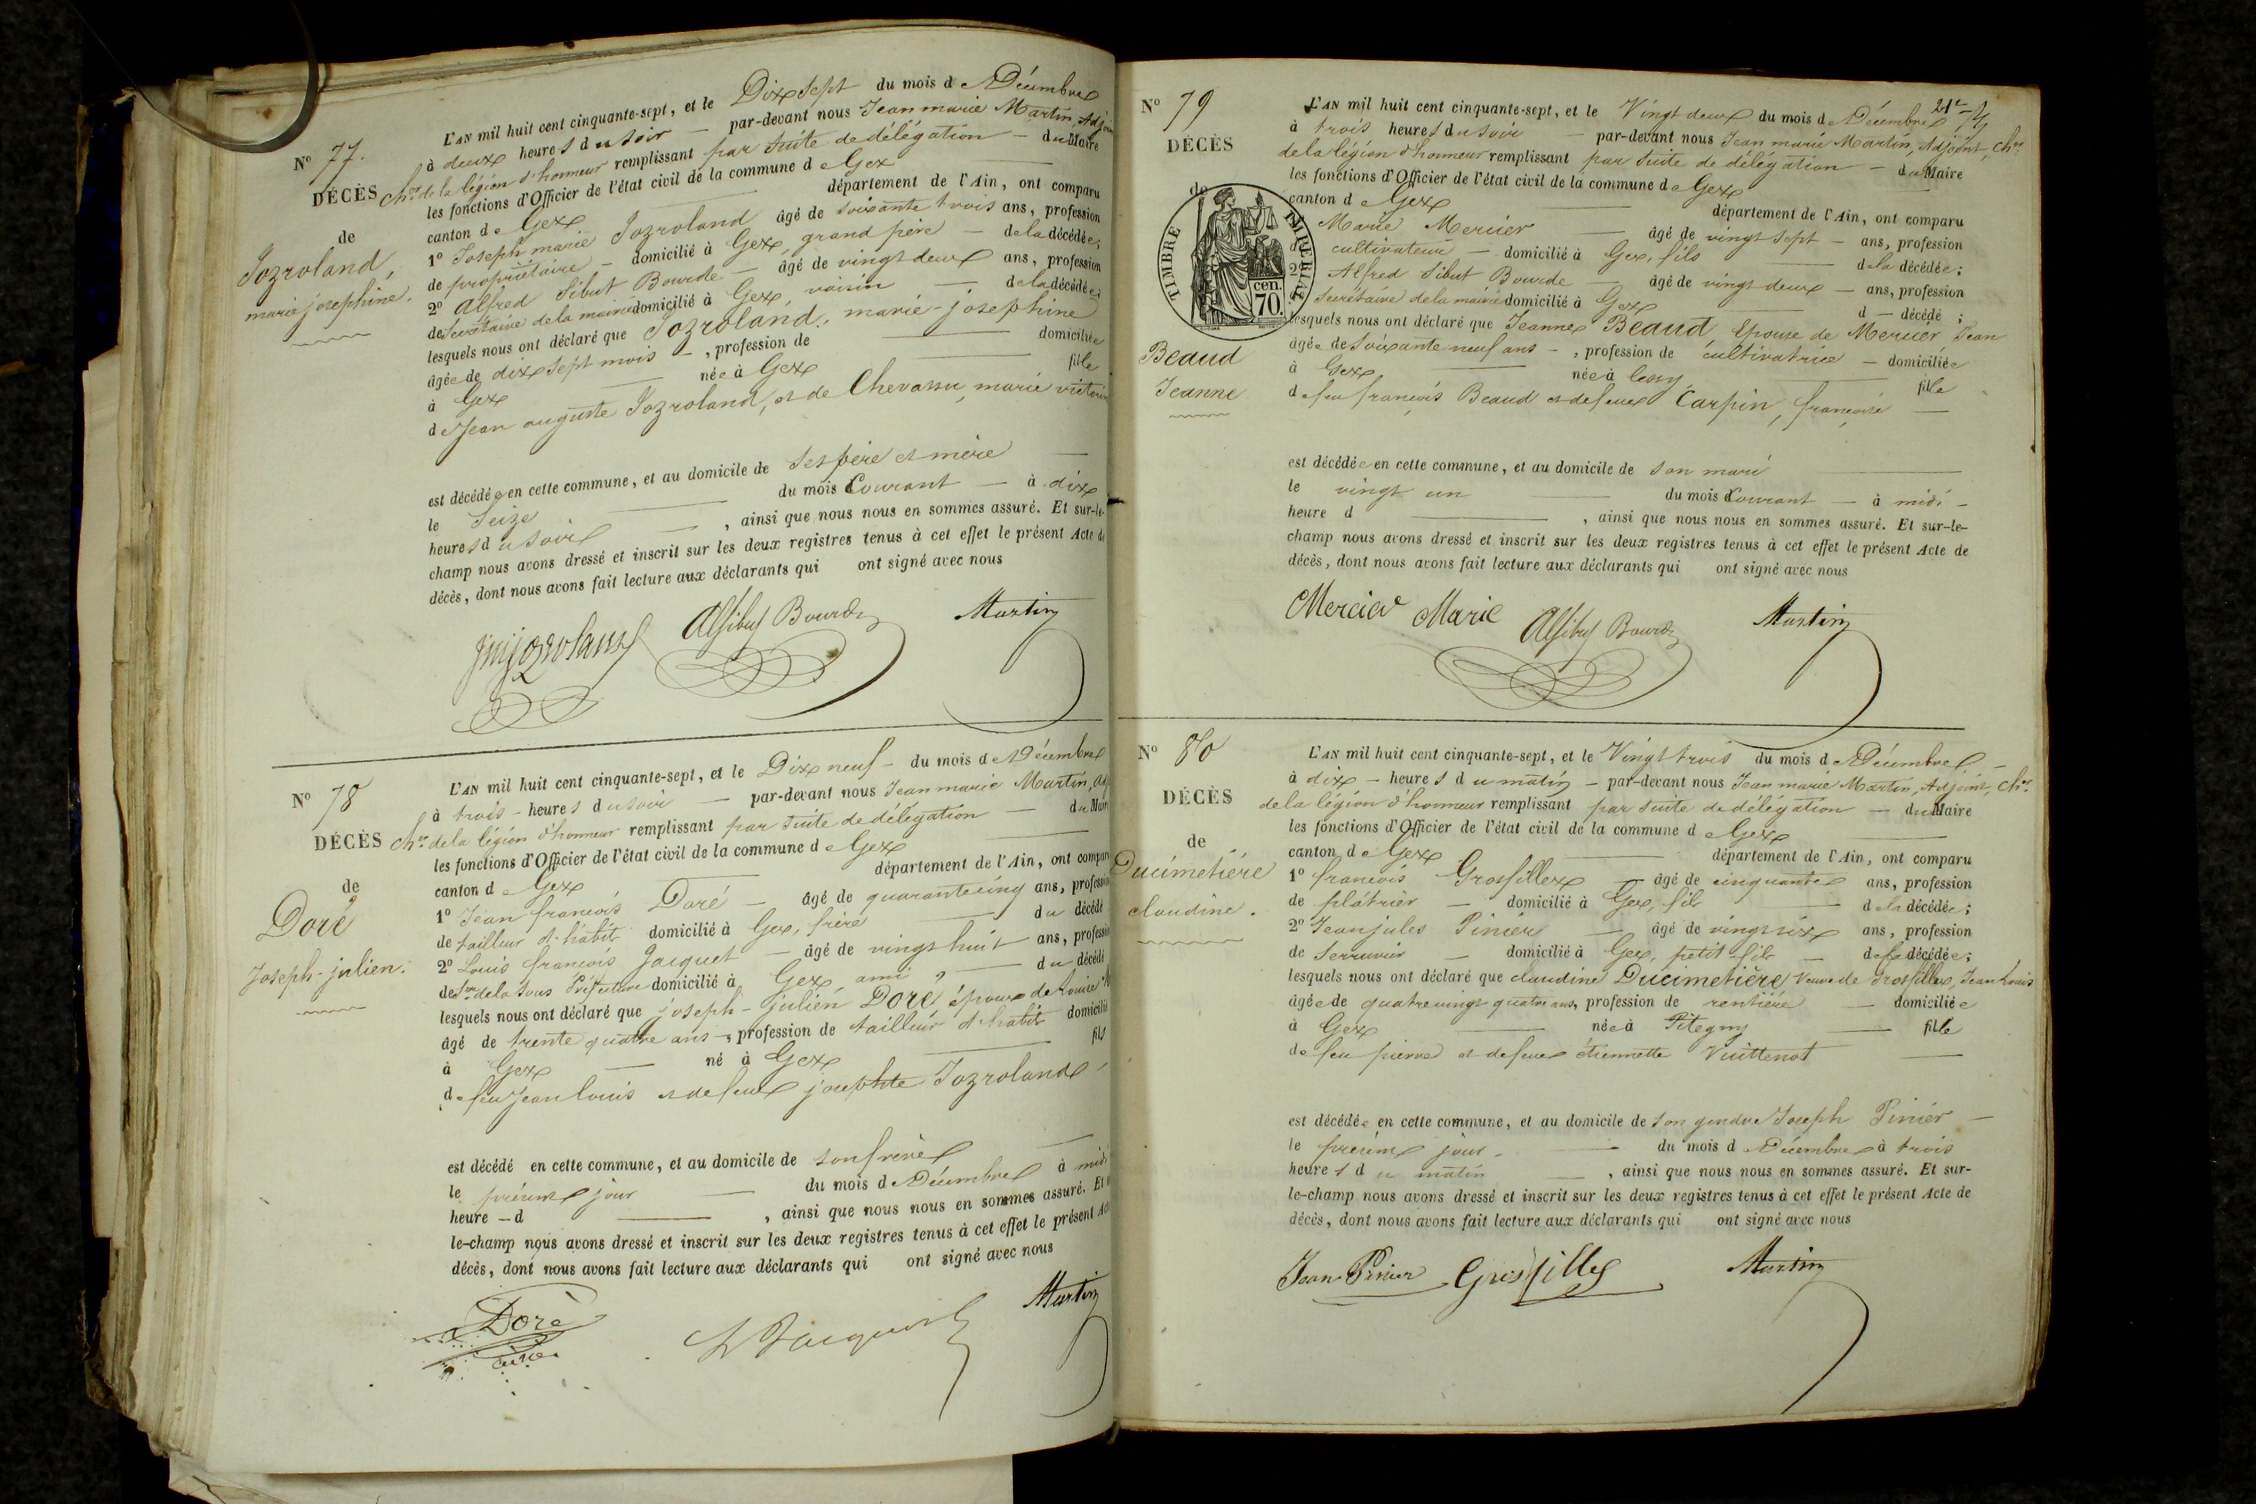 N° 77.
DÉCÈS
de
Jozroland,
marie josephine.
L'AN mil huit cent cinquante-sept, et le Dix sept du mois de Décembre
à deux heures du soir — par-devant nous Jean marie Martin, Adjoint
ch.er de la légion d'honneur remplissant par suite de délégation — du Maire
les fonctions d'Officier de l'état civil de la commune de Gex
canton de Gex — département de l'Ain, ont comparu
1° Joseph marie Jozroland âgé de soixante trois ans, profession
de propriétaire — domicilié à Gex, grand père — de la décédée;
2° Alfred Sibut Bourde — âgé de vingt deux ans, profession
de Secrétaire de la mairie domicilié à Gex, voisin — de la décédée;
lesquels nous ont déclaré que Jozroland, marie-josephine
âgée de dix sept mois —, profession de — domiciliée
à Gex — née à Gex — fille
de Jean auguste Jozroland, et de Chevassu, marie
est décédée en cette commune, et au domicile de Ses père et mère —
le Seize — du mois Courant — à dix
heures du soir —, ainsi que nous nous en sommes assuré. Et sur-le-
champ nous avons dressé et inscrit sur les deux registres tenus à cet effet le présent Acte de
décès, dont nous avons fait lecture aux déclarants qui ont signé avec nous
jmjozroland Alf Sibut Bourde Martin
N° 78
DÉCÈS
de
Doré
Joseph-julien.
L'AN mil huit cent cinquante-sept, et le Dix neuf — du mois de Décembre
à trois — heures du soir — par-devant nous Jean marie Martin, Adj
ch.er de la légion d'honneur remplissant par suite de délégation — du Maire
les fonctions d'Officier de l'état civil de la commune de Gex
canton de Gex — département de l'Ain, ont comparu
1° Jean françois Doré — âgé de quarante cinq ans, profession
de tailleur d'habits domicilié à Gex, frère — du décédé
2° Louis françois Jacquet — âgé de vingt huit ans, profession
de S.re de la Sous Préfecture domicilié à Gex, ami — du décédé
lesquels nous ont déclaré que joseph-julien Doré, époux de Louise
âgé de trente quatre ans —, profession de tailleur d'habits domicilié
à Gex — né à Gex — fils
de feu Jean Louis et de feue josephte Jozroland
est décédé en cette commune, et au domicile de son frère
le présent jour — du mois de Décembre à midi
heure — d —, ainsi que nous nous en sommes assuré. Et
le-champ nous avons dressé et inscrit sur les deux registres tenus à cet effet le présent Acte
décès, dont nous avons fait lecture aux déclarants qui ont signé avec nous
Doré L Jacquet Martin
N° 79
DÉCÈS
de
TIMBRE IMPERIAL
70 cen.
Beaud
Jeanne
21e
L'AN mil huit cent cinquante-sept, et le Vingt deux du mois de Décembre
à trois heures du soir — par-devant nous Jean marie Martin, Adjoint, ch.er
de la légion d'honneur remplissant par suite de délégation — du Maire
les fonctions d'Officier de l'état civil de la commune de Gex
canton de Gex — département de l'Ain, ont comparu
Marie Mercier — âgé de vingt sept — ans, profession
d cultivateur — domicilié à Gex, fils — de la décédée;
2° Alfred Sibut Bourde — âgé de vingt deux — ans, profession
Secrétaire de la mairie domicilié à Gex — d — décédé ;
lesquels nous ont déclaré que Jeanne Beaud Epouse de Mercier Jean
âgée de soixante neuf ans —, profession de cultivatrice — domiciliée
à Gex — née à Cessy — fille
de feu françois Beaud et de feue Carpin, françoise —
est décédée en cette commune, et au domicile de son mari —
le vingt un — du mois Courant — à midi —
heure d —, ainsi que nous nous en sommes assuré. Et sur-le-
champ nous avons dressé et inscrit sur les deux registres tenus à cet effet le présent Acte de
décès, dont nous avons fait lecture aux déclarants qui ont signé avec nous
Mercier Marie Alf Sibut Bourde Martin
N° 80
DÉCÈS
de
Ducimetière
claudine.
L'AN mil huit cent cinquante-sept, et le Vingt trois du mois de Décembre —
à dix — heures du matin — par-devant nous Jean marie Martin, Adjoint, ch.er
de la légion d'honneur remplissant par suite de délégation — du Maire
les fonctions d'Officier de l'état civil de la commune de Gex
canton de Gex — département de l'Ain, ont comparu
1° françois Grosfillex — âgé de cinquante ans, profession
de plâtrier — domicilié à Gex, fils — de la décédée;
2° Jean jules Pinier — âgé de vingt six ans, profession
de Serrurier — domicilié à Gex, petit fils — de la décédée;
lesquels nous ont déclaré que claudine Ducimetière veuve de Grosfillex, Jean Louis
âgée de quatre vingt quatre ans, profession de rentière — domiciliée
à Gex — née à Pitegny — fille
de feu pierre et de feue étiennette Vuittenot —
est décédée en cette commune, et au domicile de son gendre Joseph Pinier —
le présent jour — du mois de Décembre à trois
heures du matin —, ainsi que nous nous en sommes assuré. Et sur-
le-champ nous avons dressé et inscrit sur les deux registres tenus à cet effet le présent Acte de
décès, dont nous avons fait lecture aux déclarants qui ont signé avec nous
Jean Pinier Grosfillex Martin